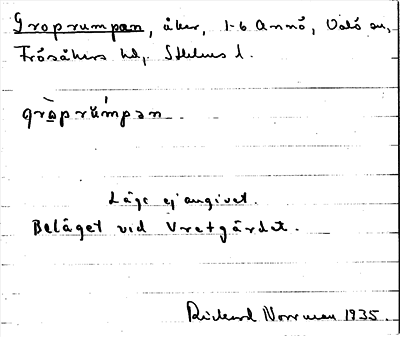 Groprumpan, åker, 1-6 Annö, Valö sn,
Frösåkers hd, Sthlms l.
gròprúmpan
Läge ej angivet.
Beläget vid Vretgärdet.
Rickard Norrman 1935.